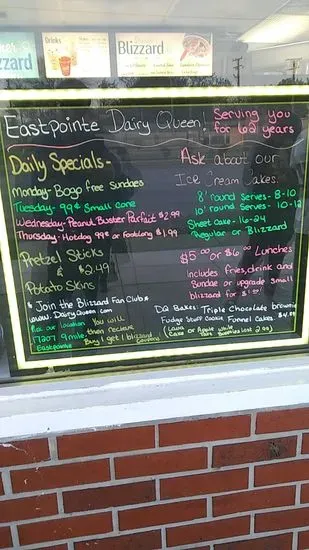 zzard
Drinks
Blizzard
Eastpointe Dairy Queen!
Serving you
for 62 years
Daily Specials-
Monday- Bogo free Sundaes
Tuesday- 99¢ Small cone
Wednesday- Peanut Buster Parfait $2.99
Thursday- Hotdog 99¢ or Footlong $1.99
Pretzel Sticks
& $2.49
Potato Skins
* Join the Blizzard Fan Club *
www. DairyQueen.com
Pic our location
17207 9 mile
Eastpointe
You will
then recieve
Buy 1 get 1 blizzard
Coupons
Ask about our
Ice Cream Cakes.
8" round serves- 8-10
10" round serves- 10-12
Sheet cake- 16-24
Regular or Blizzard
$5.00 or $6.00 Lunches
Includes fries, drink and
Sundae or upgrade small
blizzard for
DQ Bakes: Triple Chocolate brownie
Fudge Stuff Cookie Funnel Cakes
(Lava Cake or Apple Tarts while supplies last 2.99)